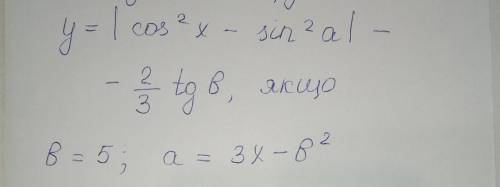 y = | cos² x - sin² a | -
- 2/3 tg b, якщо
b = 5; a = 3x - b²